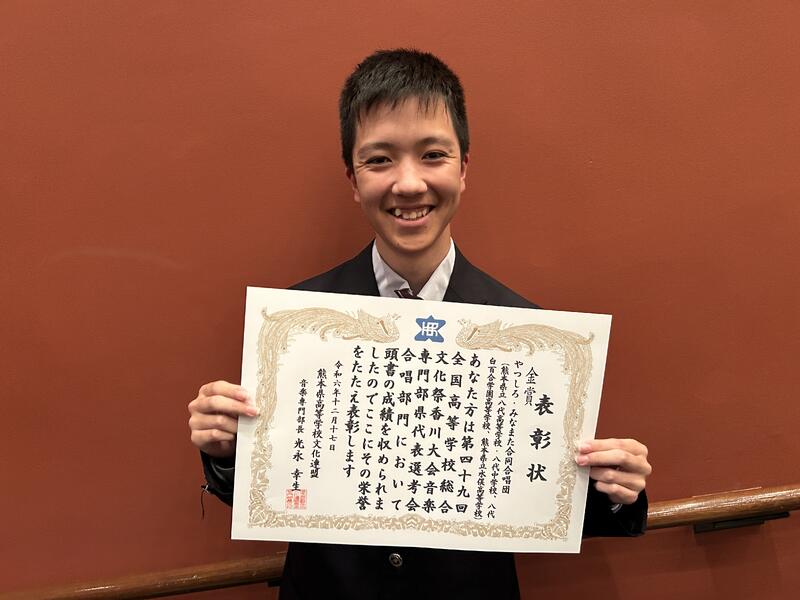 表彰状
金賞
やっしろ・みなまた合同合唱団
(熊本県立八代高等学校・八代中学校、八代
白百合学園高等学校、熊本県立水俣高等学校)
あなた方は第四十九回
全国高等学校総合
文化祭香川大会音楽
専門部県代表選考会
合唱部門において
頭書の成績を収められま
したのでここにその栄誉
をたたえ表彰します
令和六年十二月十七日
熊本県高等学校文化連盟
音楽専門部長 光永幸生